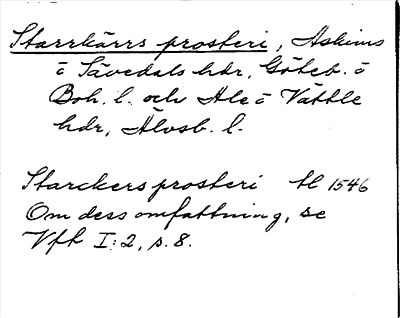 Starrkärrs prosteri, Askims
o Sävedals hdr, Göteb. o
Boh. l. och Ale o Vättle
hdr, Älvsb. l.
Starckers prosteri tl 1546
Om dess omfattning, se
Vft I:2, s. 8.